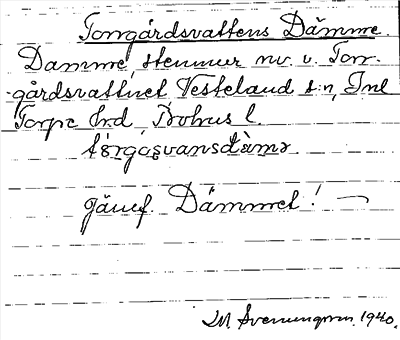 Torrgårdsvattens Dämme.
Damme, stenmur nv. v. Torr-
gårdsvattnet Västerlanda s:n, Inl
Torpe hrd, Bohus l.
törgasvansdämə
jämf. Dämmet! —
M. Svenungsson. 1940.